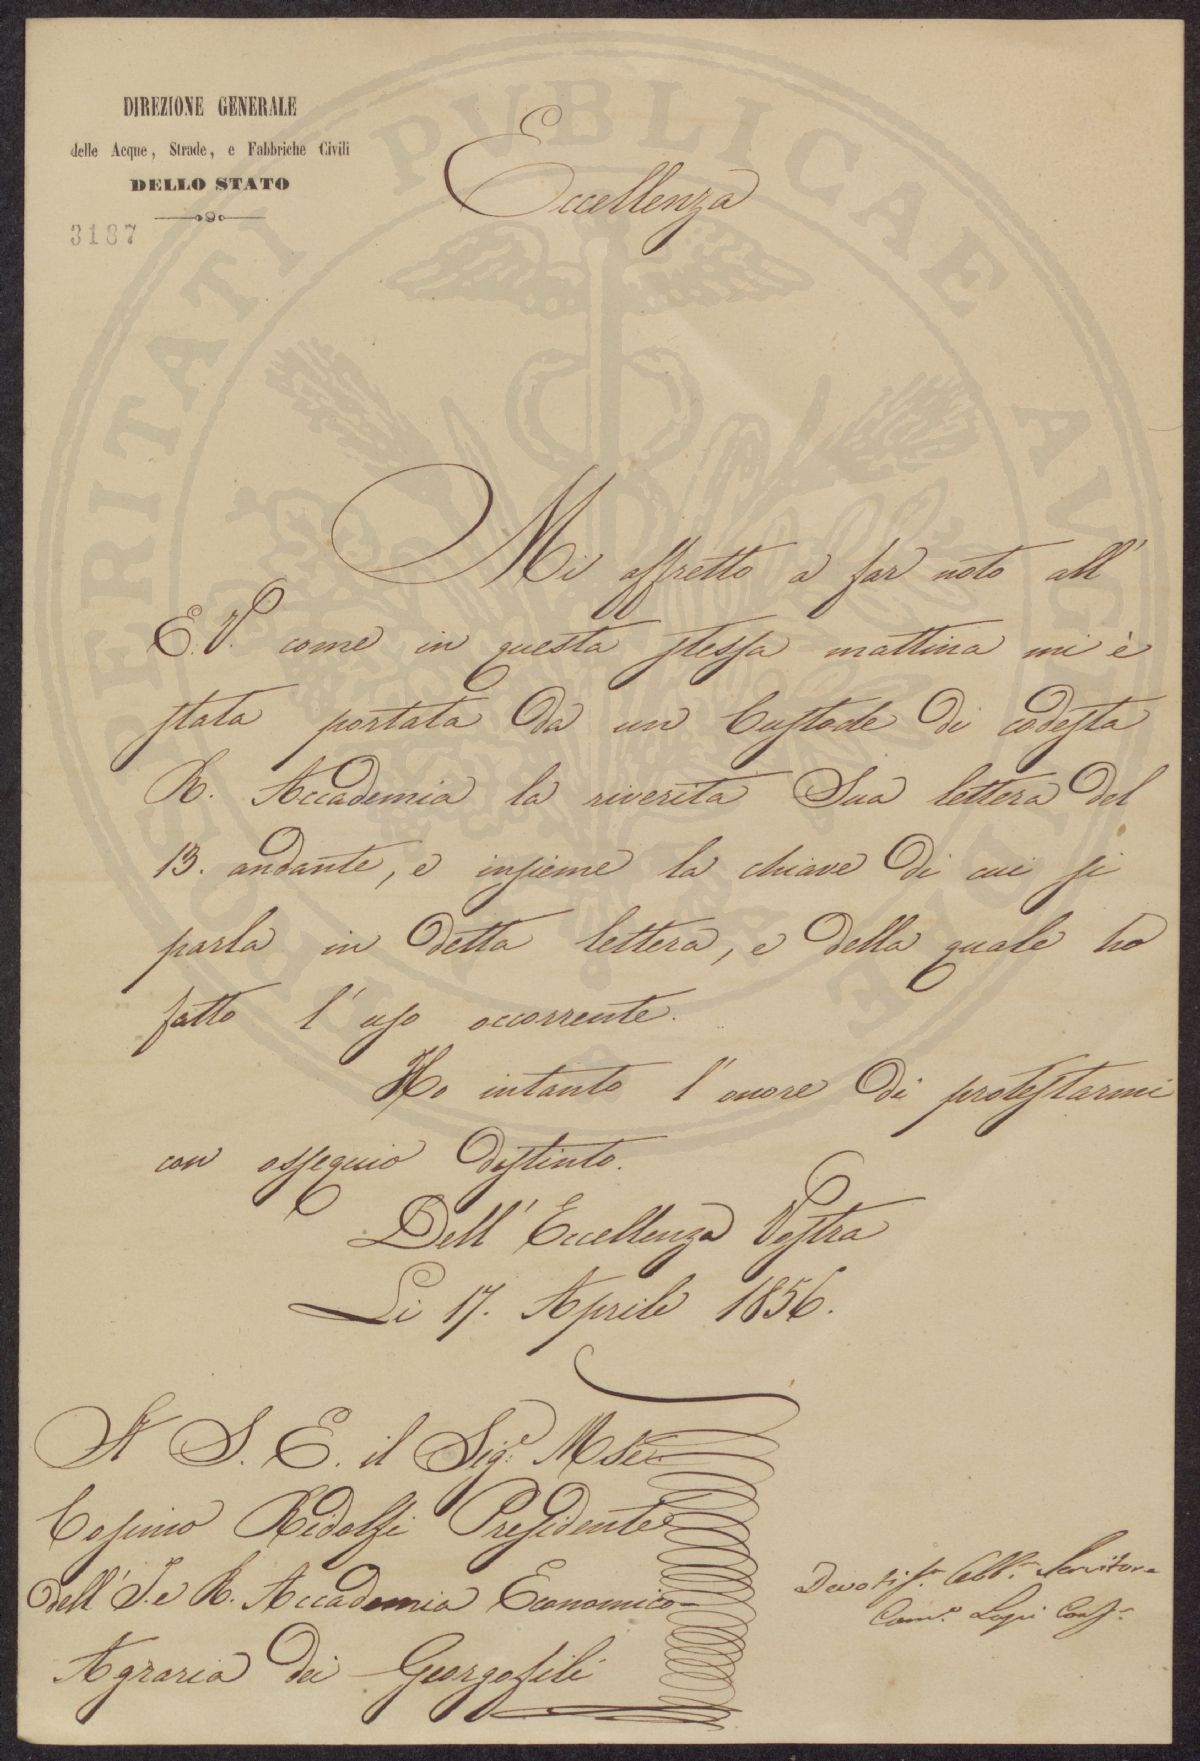 DIREZIONE GENERALE
delle Acque, Strade, e Fabbriche Civili
DELLO STATO
3187
PROSPERITATI PUBLICAE AUGENDAE
Eccellenza
Mi affretto a far noto all'
E. V. come in questa stessa mattina mi è
stata portata da un Custode di codesta
R. Accademia la riverita Sua lettera del
13. andante, e insieme la chiave di cui si
parla in detta lettera, e della quale ho
fatto l'uso occorrente.
Ho intanto l'onore di protestarmi
con ossequio distinto.
Dell'Eccellenza Vostra
Li 17. Aprile 1856.
A S. E. il Sig.e Mse
Cosimo Ridolfi Presidente
dell'I. e R. Accademia Economico-
Agraria dei Georgofili
Devotiss. Obb. Servitore